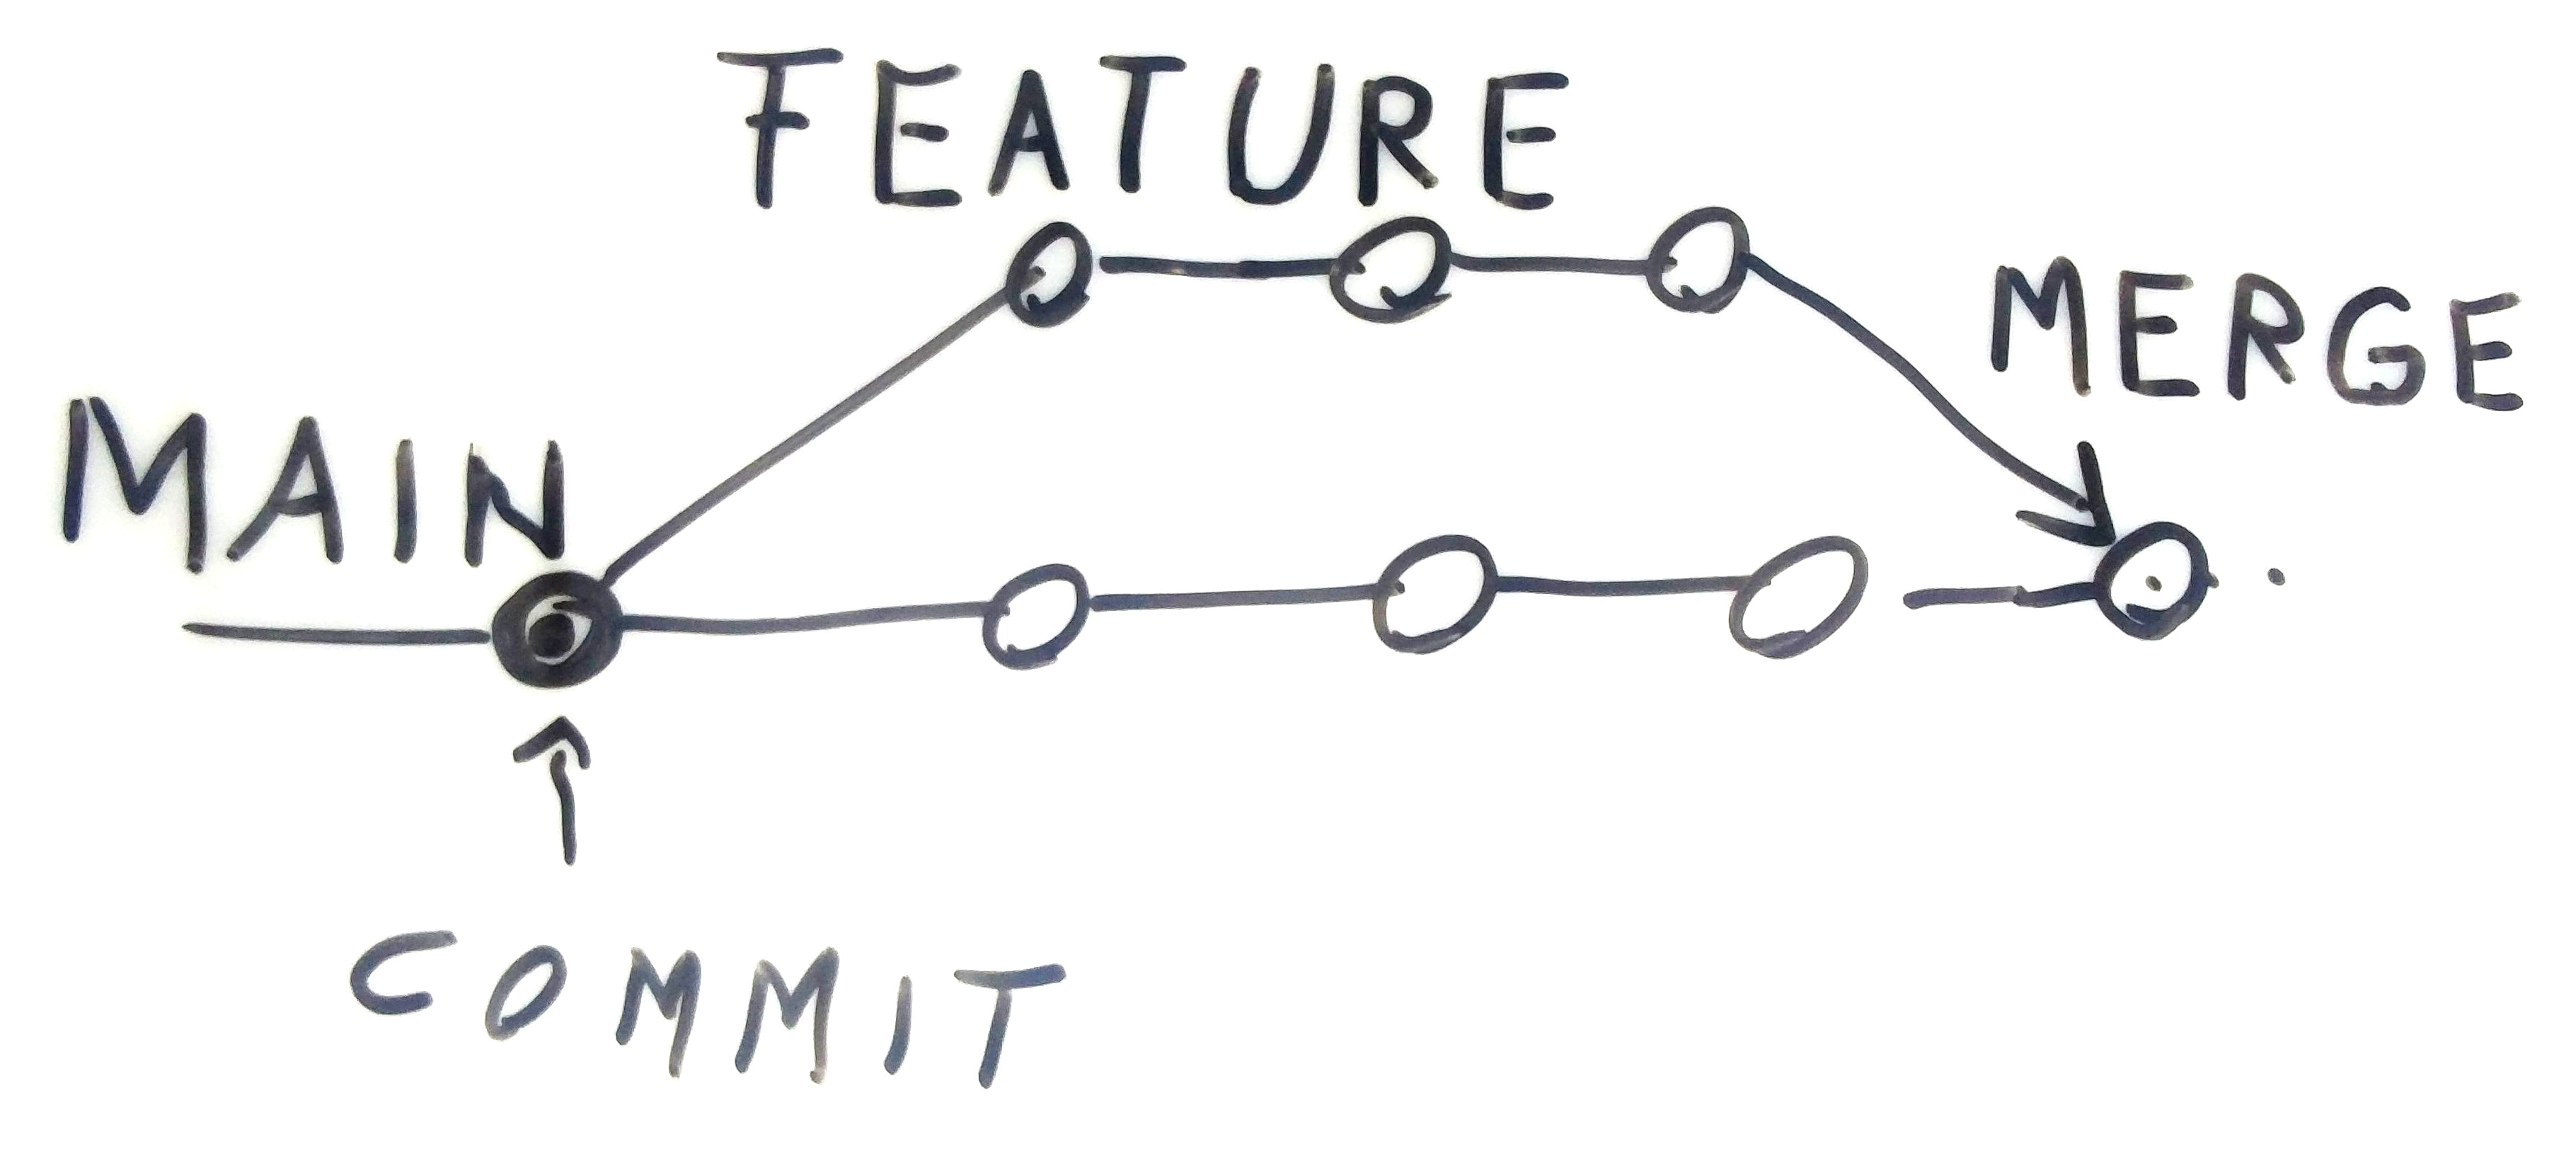 FEATURE
MERGE
MAIN
COMMIT